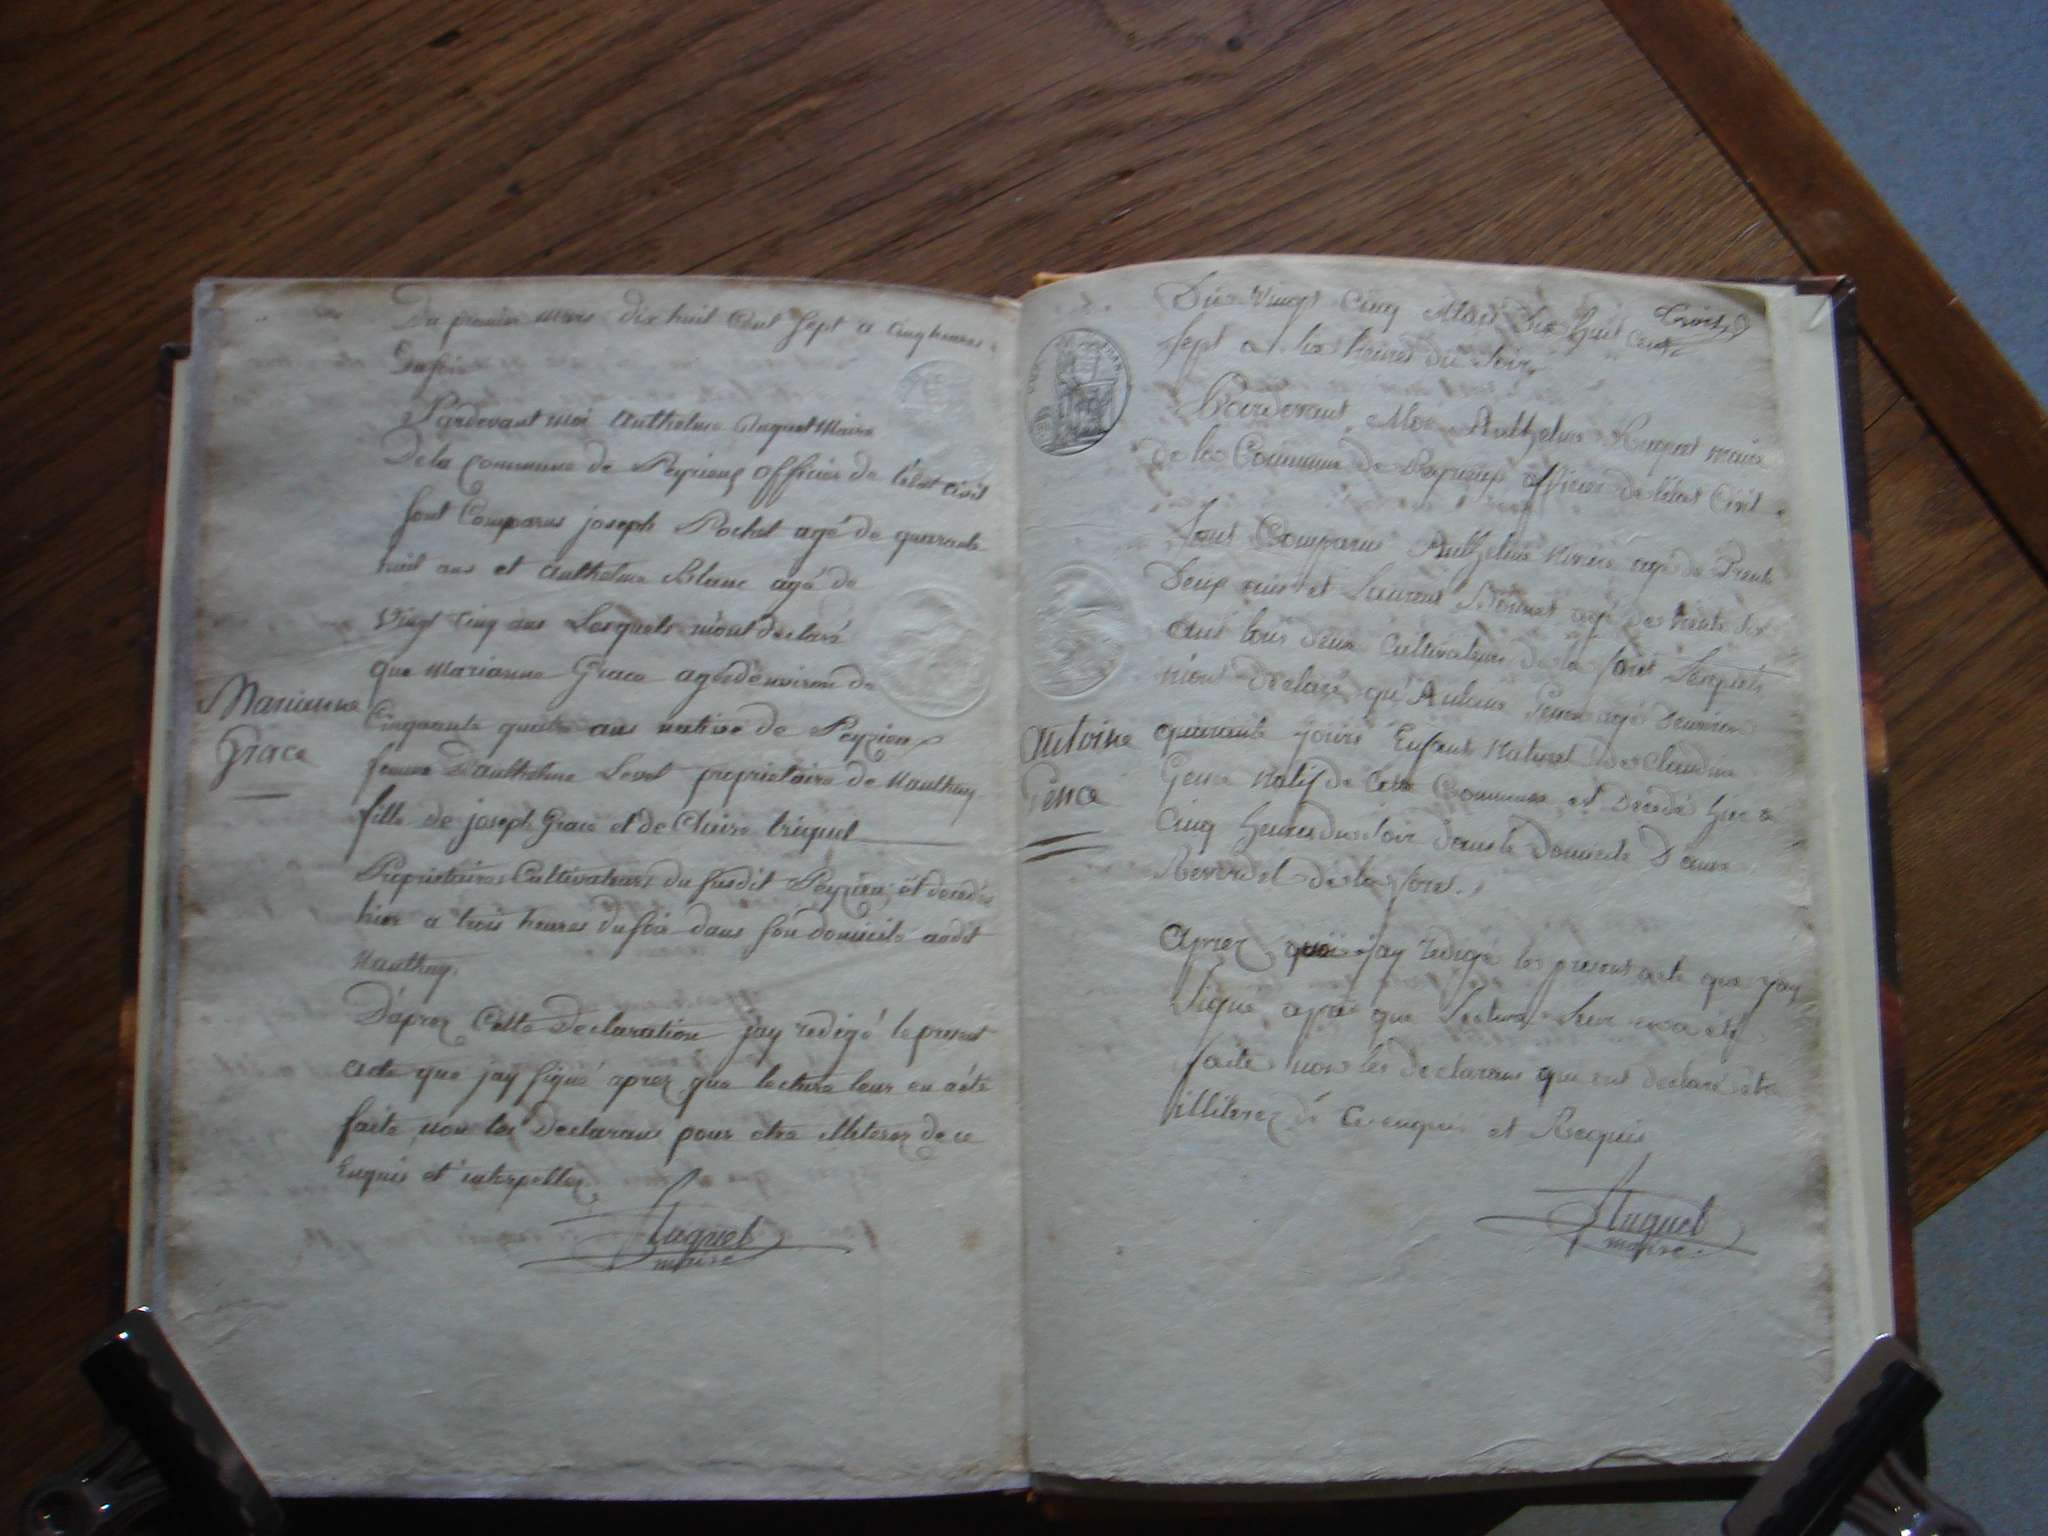 Du premier mars dix huit Cent Sept a Cinq heures
Du soir
Pardevant moi Anthelme Huguet Maire
De la Commune de Peyrieu officier de l'état civil
sont Comparus joseph Pochet agé de quarante
huit ans et Anthelme Blanc agé de
Vingt Cinq ans Lesquels m'ont declaré
que Marianne Grace agée d'environ de
Cinquante quatre ans native de Peyzieu
femme d'Anthelme Levet proprietaire de Nanthuy
fille de joseph Grace et de Claire triquet
Proprietaires Cultivateurs du susdit Peyzieu, est decedée
hier a trois heures du soir dans son domicile audit
Nanthuy.
D'aprez Cette Declaration jay redigé le present
acte que jay signé aprez que lecture leur en a été
faite, non les Declarans pour etre illiterez de ce
Enquis et interpellez.
Huguet
maire
Marianne
Grace
Troisr
Du Vingt Cinq Mars dix huit cent
sept a six heures du soir
Pardevant Moi Anthelme Huguet maire
de la Commune de Peyrieu officier de l'état Civil
Sont Comparus Anthelme agé de Trente
Deux ans et Laurent Bonnet agé de trente six
ans tous deux Cultivateurs de la foret Lesquels
m'ont declaré qu'Antoine Gence agé d'environ
quarante jours Enfant Naturel de Claudine
Gence natif de Cette Commune est decedé hier a
Cinq heures du soir dans le domicile d'anne
Reverdel de la foret.
Aprez quoi jay redigé le present acte que jay
signé aprez que Lecture Leur en a été
faite non les declarans qui ont declaré etre
illiterez de Ce enquis et Requis
Huguet
maire
Antoine
Gence